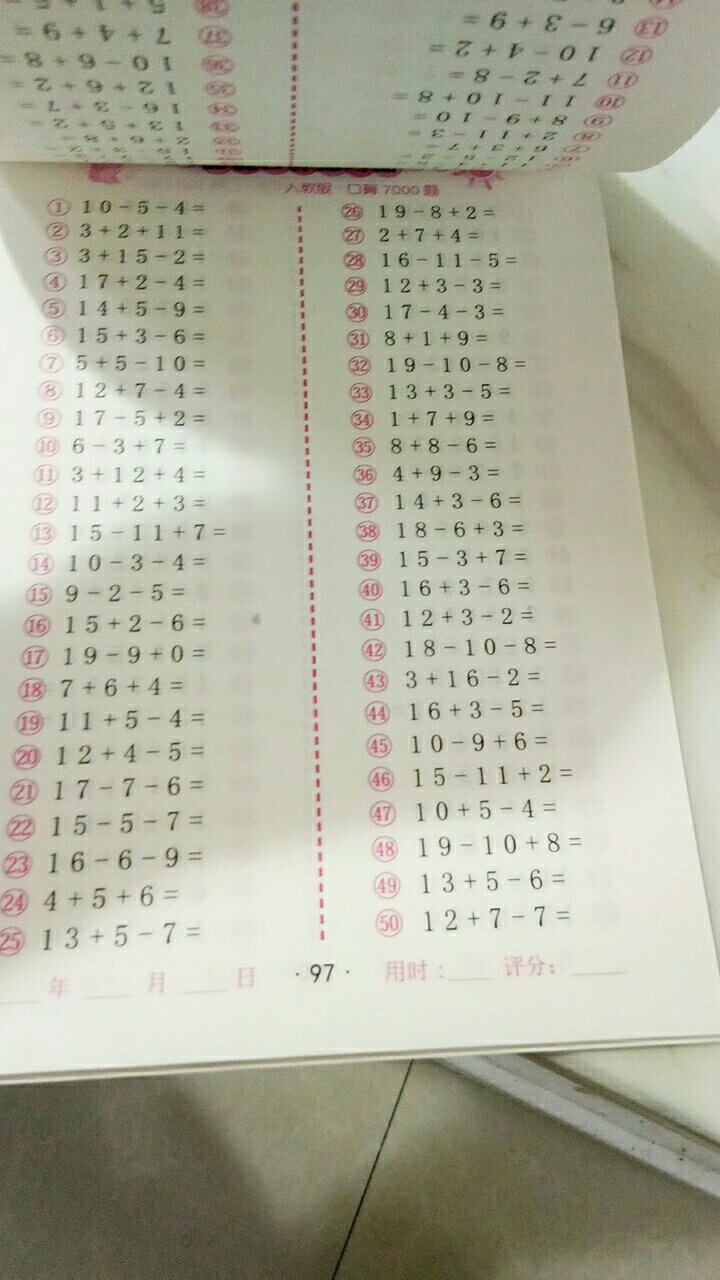 人教版 口算 7000 题
① 10-5-4=
② 3+2+11=
③ 3+15-2=
④ 17+2-4=
⑤ 14+5-9=
⑥ 15+3-6=
⑦ 5+5-10=
⑧ 12+7-4=
⑨ 17-5+2=
⑩ 6-3+7=
⑪ 3+12+4=
⑫ 11+2+3=
⑬ 15-11+7=
⑭ 10-3-4=
⑮ 9-2-5=
⑯ 15+2-6=
⑰ 19-9+0=
⑱ 7+6+4=
⑲ 11+5-4=
⑳ 12+4-5=
㉑ 17-7-6=
㉒ 15-5-7=
㉓ 16-6-9=
㉔ 4+5+6=
㉕ 13+5-7=
㉖ 19-8+2=
㉗ 2+7+4=
㉘ 16-11-5=
㉙ 12+3-3=
㉚ 17-4-3=
㉛ 8+1+9=
㉜ 19-10-8=
㉝ 13+3-5=
㉞ 1+7+9=
㉟ 8+8-6=
㊱ 4+9-3=
㊲ 14+3-6=
㊳ 18-6+3=
㊴ 15-3+7=
㊵ 16+3-6=
㊶ 12+3-2=
㊷ 18-10-8=
㊸ 3+16-2=
㊹ 16+3-5=
㊺ 10-9+6=
㊻ 15-11+2=
㊼ 10+5-4=
㊽ 19-10+8=
㊾ 13+5-6=
㊿ 12+7-7=
____年____月____日 ·97· 用时：____ 评分：____
⑬ 6-3+9=
⑫ 10-4+2=
⑪ 7+2-8=
⑩ 11-10+8=
⑨ 8+9-10=
⑧ 2+11-3=
㊲ 7+4+9=
㊱ 10-6+8=
㉟ 12+6+2=
㉞ 16-3+7=
㉝ 13+5+2=